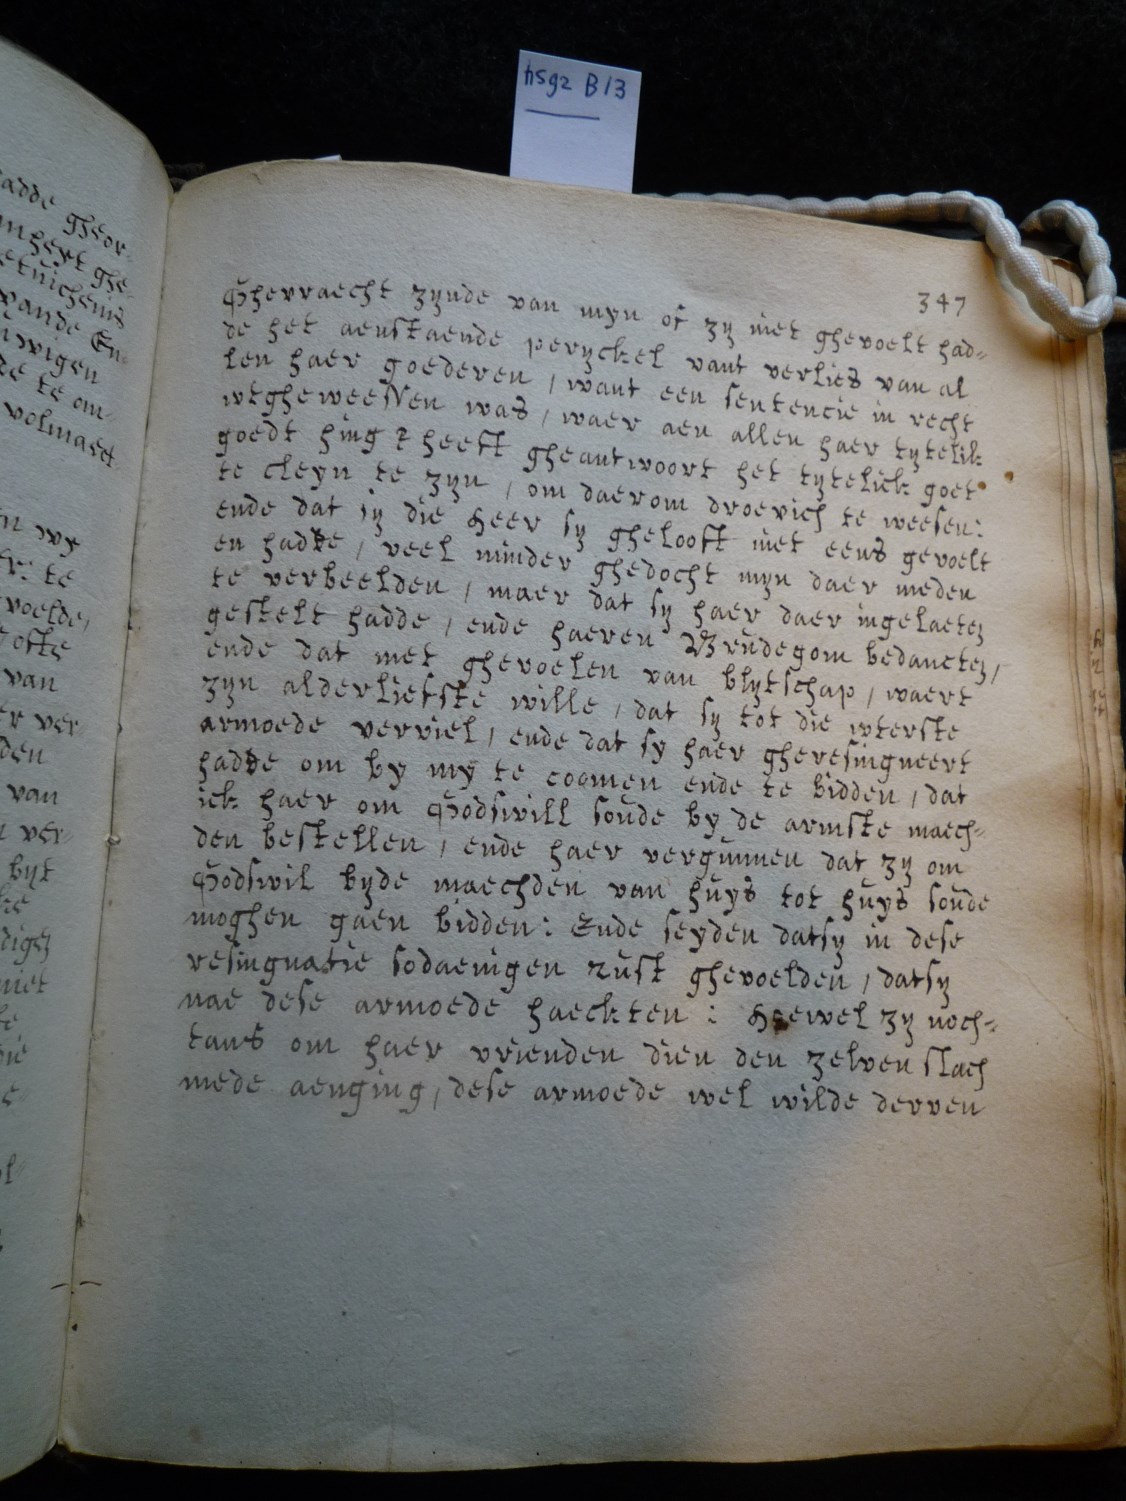 hsg2 B13
347
Ghevraecht zynde van myn of zy niet ghevoelt had-
de het aenstaende peryckel vant verlies van al
len haer goederen / want een sententie in recht
wtgheweessen was / waer aen allen haer tytelik
goedt hing? heeft gheantwoort het tytelick goet
te cleyn te zyn / om daerom droevich te weesen:
ende dat sy die Heer sy ghelooft niet eens gevoelt
en hadde / veel minder ghedocht myn daer meden
te verbeelden / maer dat sy haer daer ingelaeten
gestelt hadde / ende haeren Brudegom bedancten /
ende dat met ghevoelen van blytschap / waert
zyn alderliefste wille / dat sy tot die wterste
armoede verviel / ende dat sy haer gheresingneert
hadde om by my te coomen ende te bidden / dat
ick haer om Godswill soude by de armste maech-
den bestellen / ende haer vergunnen dat zy om
Godswil byde maechden van huys tot huys soude
moghen gaen bidden: Ende seyden datsy in dese
resingnatie sodaenigen rust ghevoelden / datsy
nae dese armoede haeckten: Hoewel zy noch-
tans om haer vrienden dien den zelven slach
mede aenging / dese armoede wel wilde derven
adde gheor-
ghe-
etuichenis
vande En-
wigen
te om-
volmaect
wy
te
voelde /
van
ver
den
van
ver-
byt
niet